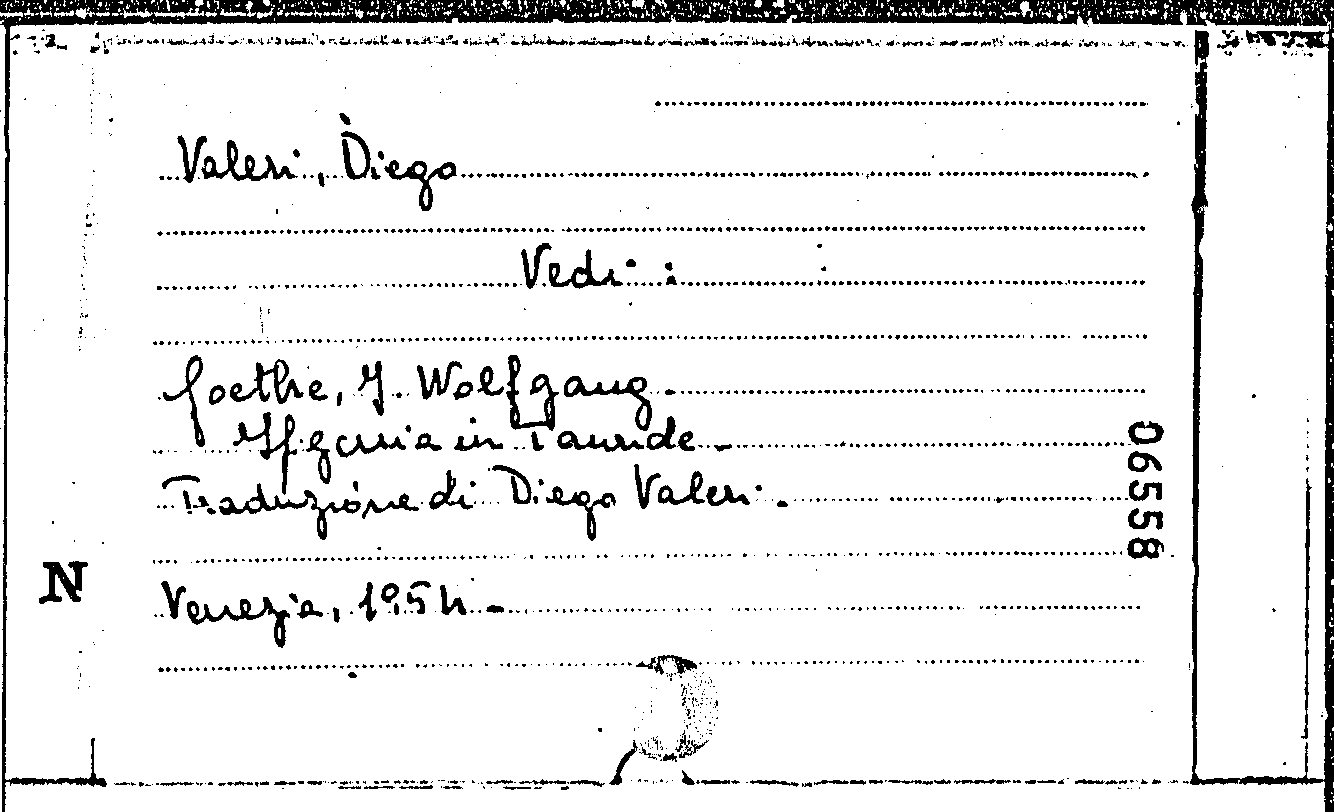 Valeri, Diego
Vedi :
Goethe, J. Wolfgang.
Ifigenia in Tauride.
Traduzione di Diego Valeri.
Venezia, 1954
N
06558